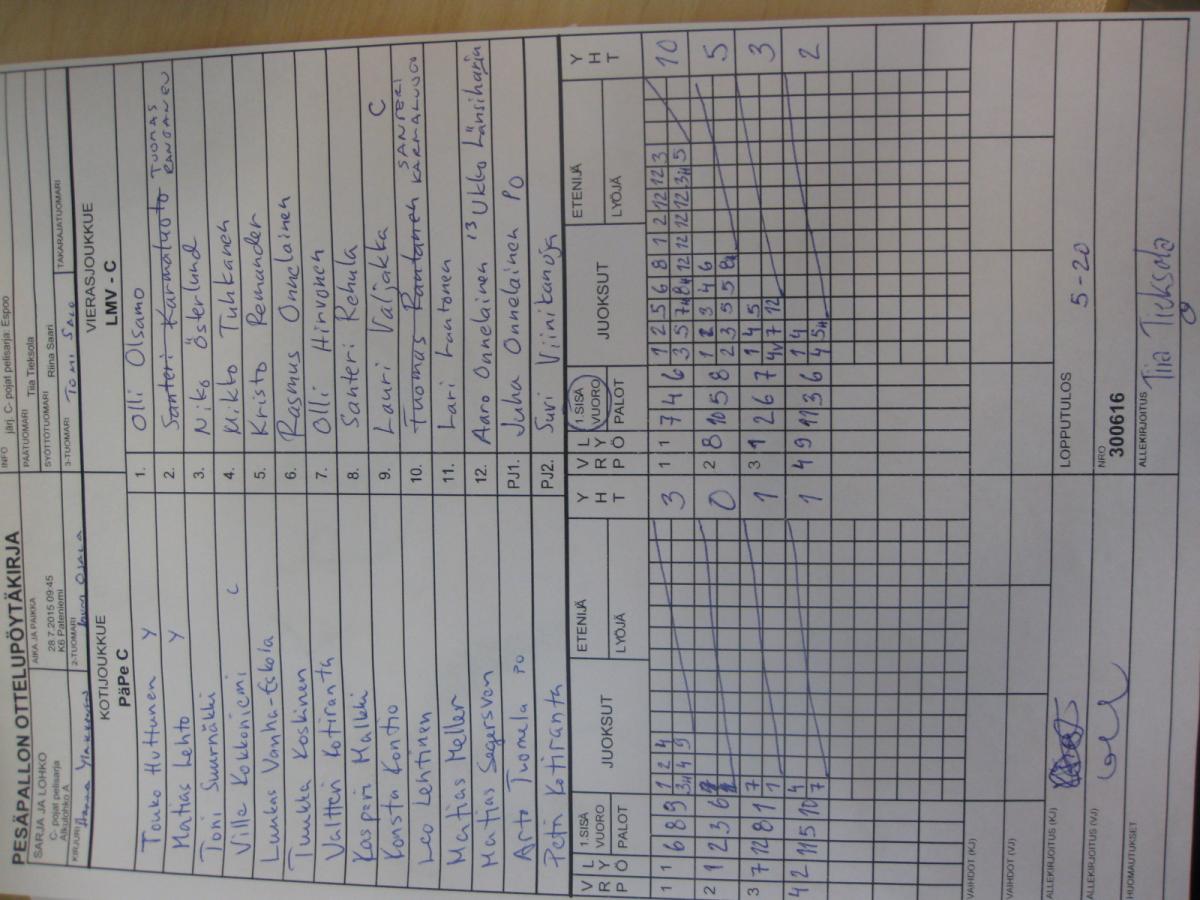 PESÄPALLON OTTELUPÖYTÄKIRJA
INFO järj. C- pojat pelisarja: Espoo
SARJA JA LOHKO
C- pojat pelisarja
Alkulohko A
AIKA JA PAIKKA
28.7.2015 09:45
K6 Pateniemi
PÄÄTUOMARI Tiia Tieksola
SYÖTTÖTUOMARI Riina Saari
KIRJURI
2-TUOMARI
3-TUOMARI TOMI SALO
TAKARAJATUOMARI
KOTIJOUKKUE
PäPe C
VIERASJOUKKUE
LMV - C
Touko Huttunen Y 1. Olli Olsamo
Matias Lehto Y 2. Santeri Karmaluoto TUOMAS RANTANEN
Toni Suurnäkki 3. Niko Österlund
Ville Kokkoniemi C 4. Kikko Tuhkanen
Luukas Vanha-Eskola 5. Kristo Remander
Tuukka Koskinen 6. Rasmus Onnelainen
Valtteri Kotiranta 7. Olli Hirvonen
Kaspari Malkki 8. Santeri Rehula
Konsta Kontio 9. Lauri Valjakka C
Leo Lehtinen 10. Tuomas Rantanen SANTERI KARMALUOTO
Matias Meller 11. Lari Luntonen
Matias Segersven 12. Aaro Onnelainen 13 Ukko Länsiharja
Arto Tuomela PO PJ1. Juha Onnelainen PO
Petri Kotiranta PJ2. Suvi Viinikanoja
V R P L Y Ö 1.SISÄ VUORO PALOT JUOKSUT ETENIJÄ LYÖJÄ Y H T
V R P L Y Ö 1.SISÄ VUORO PALOT JUOKSUT ETENIJÄ LYÖJÄ Y H T
1 1 6 8 9 1 2 4 3
3H 4 9
1 1 7 4 6 1 2 5 6 8 1 2 12 12 3 10
2 1 2 3 6 0
2 8 10 5 8 1 2 3 4 6 5
3 7 12 8 1 7 1
1
3 1 2 6 7 1 4 5 3
4 2 11 5 10 4 1
7
4 9 11 3 6 1 4 2
4 5H
VAIHDOT (KJ)
VAIHDOT (VJ)
ALLEKIRJOITUS (KJ)
LOPPUTULOS 5 - 20
ALLEKIRJOITUS (VJ)
NRO
300616
HUOMAUTUKSET
ALLEKIRJOITUS
Tiia Tieksola